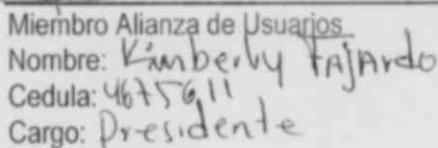 Miembro Alianza de Usuarios
Nombre: Kimberly FAJArdo
Cedula: 4675611
Cargo: Presidente